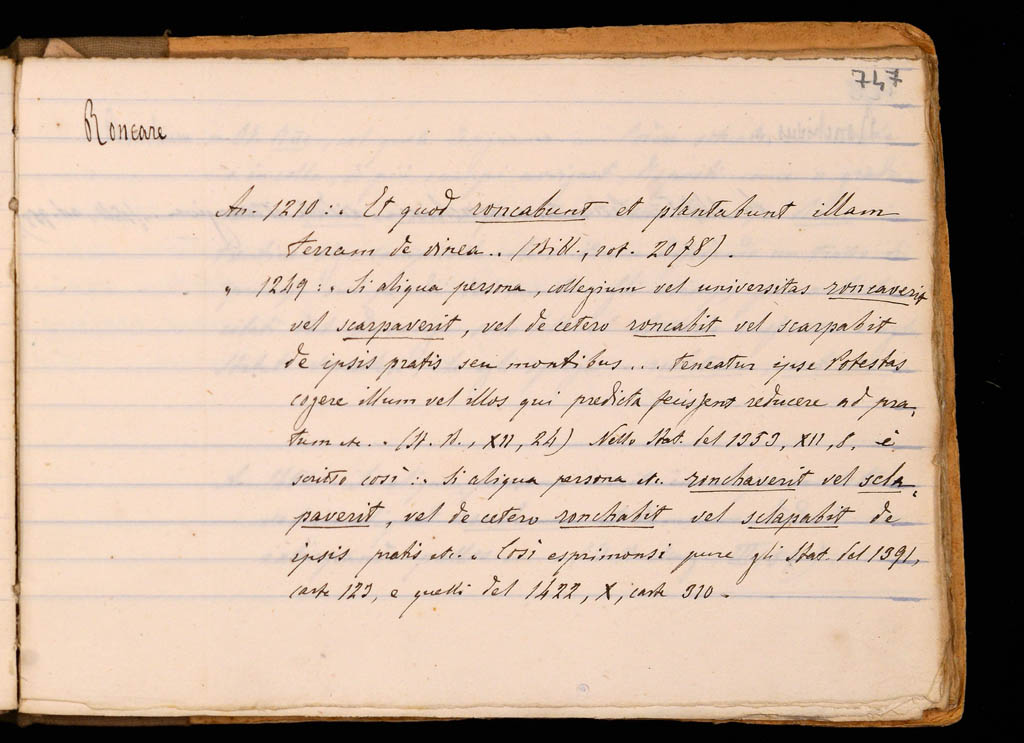 747
Roncare
An. 1210 : „ Et quod roncabunt et plantabunt illam
terram de vinea .. (Bibl., rot. 2078).
„ 1249 : „ Si aliqua persona, collegium vel universitas roncaverit
vel scarpaverit, vel de cetero roncabit vel scarpabit
de ipsis pratis seu montibus ... teneatur ipse Potestas
cogere illum vel illos qui predicta fecissent reducere ad pra-
tum etc. „ (St. B., XII, 24) Nello Stat. del 1353, XII, 8, è
scritto così : „ Si aliqua persona etc. ronchaverit vel scla-
paverit, vel de cetero ronchabit vel sclapabit de
ipsis pratis etc. „ Così esprimonsi pure gli Stat. del 1391,
carte 123, e quelli del 1422, X, carte 310.